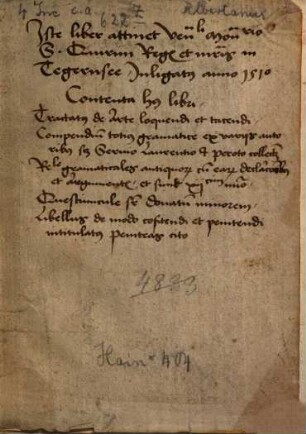 4 Inc. c. a. 622 Albertanus
Iste liber attinet Ven. li Mon. rio
S. Quirini Regis et mris in
Tegernsee Inligatus anno 1510
Contenta hui libri
Tractatus de Arte loquendi et tacendi
Compendium totius gramatice ex varijs auto
ribus Laurentio et Peroto collectu
Rele gramaticales antiquorum cum earum declarationibus
et argumentis et sunt numero
Questiuncule super donatum minorem
Libellus de modo confitendi et penitendi
intitulatus Peniteas cito
4883
Hain 404